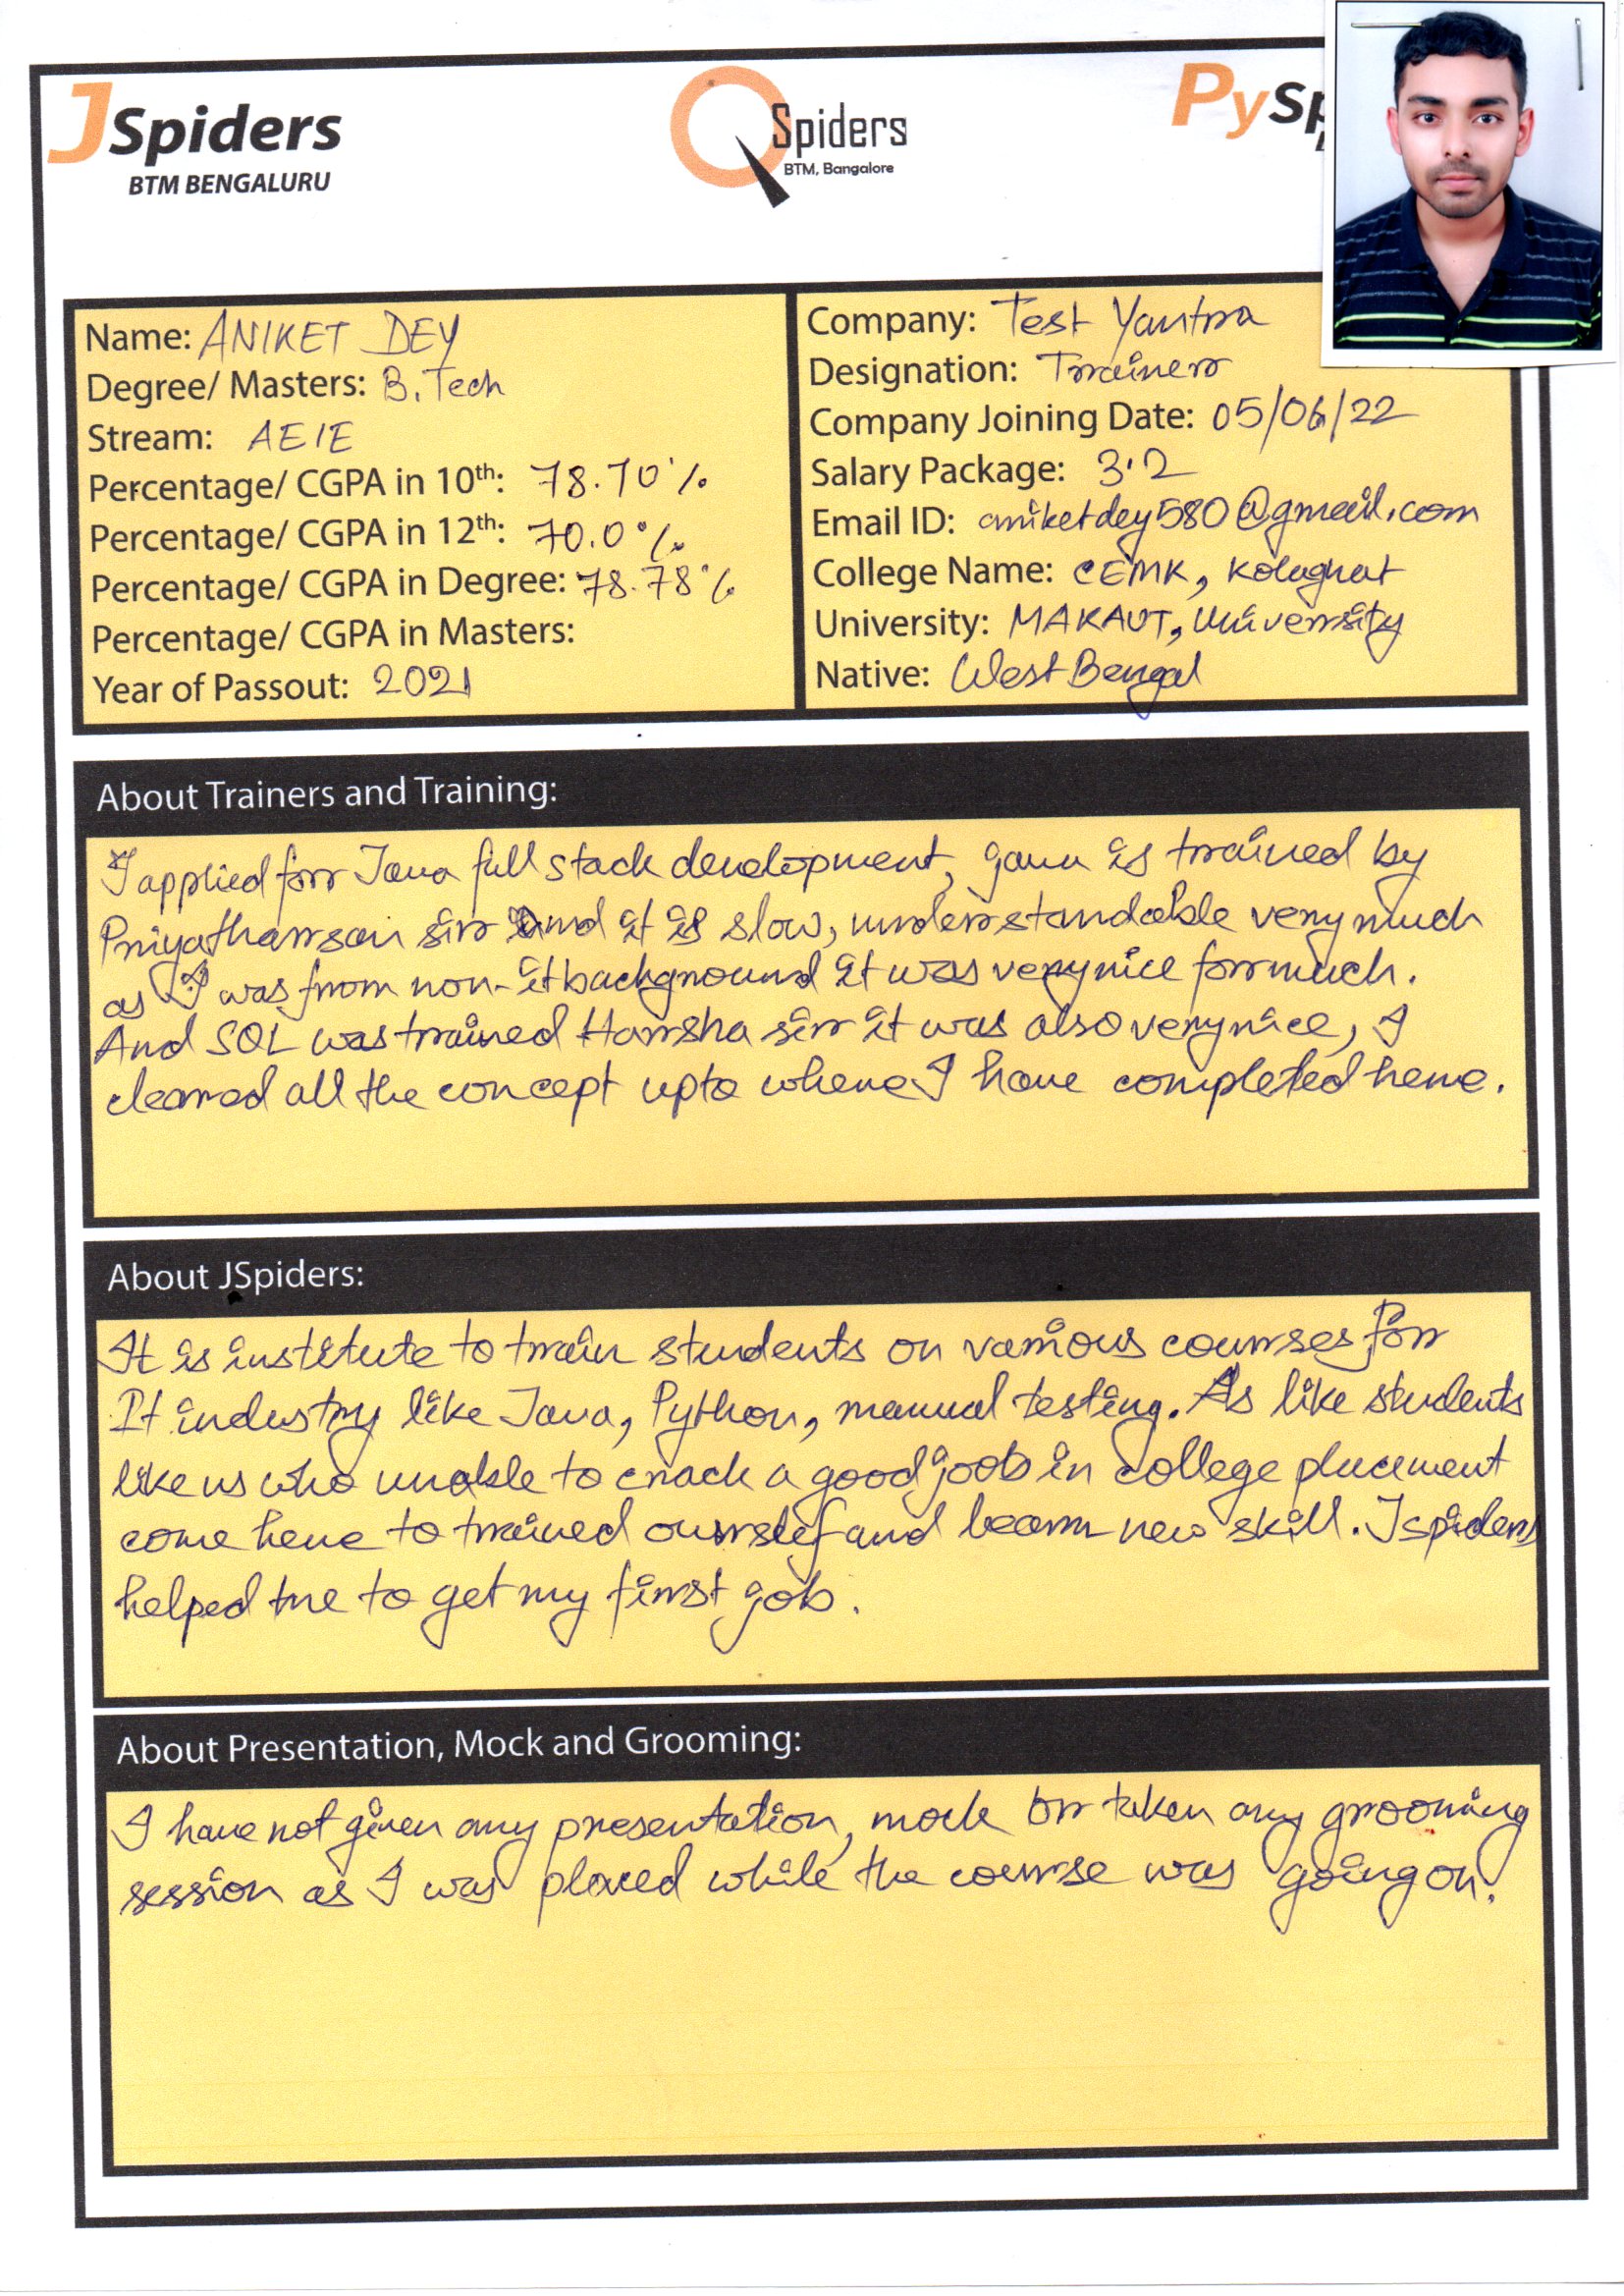 JSpiders
BTM BENGALURU
QSpiders
BTM, Bangalore
PySp
Name: ANIKET DEY
Degree/ Masters: B.Tech
Stream: AEIE
Percentage/ CGPA in 10th: 78.70%
Percentage/ CGPA in 12th: 70.0%
Percentage/ CGPA in Degree: 78.78%
Percentage/ CGPA in Masters:
Year of Passout: 2021
Company: Test Yantra
Designation: Trainer
Company Joining Date: 05/06/22
Salary Package: 3.2
Email ID: aniketdey580@gmail.com
College Name: CEMK, Kolaghat
University: MAKAUT, University
Native: West Bengal
About Trainers and Training:
I applied for Java full stack development, java is trained by
Priyatharsan sir and it is slow, understandable very much
as I was from non-it background it was very nice for much.
And SQL was trained Harsha sir it was also very nice, I
cleared all the concept upto where I have completed here.
About JSpiders:
It is institute to train students on various courses for
It industry like Java, Python, manual testing. As like students
like us who unable to crack a good joob in college placement
come here to trained ourslef and learn new skill. Jspiders
helped me to get my first job.
About Presentation, Mock and Grooming:
I have not given any presentation, mock or taken any grooming
session as I was placed while the course was going on.